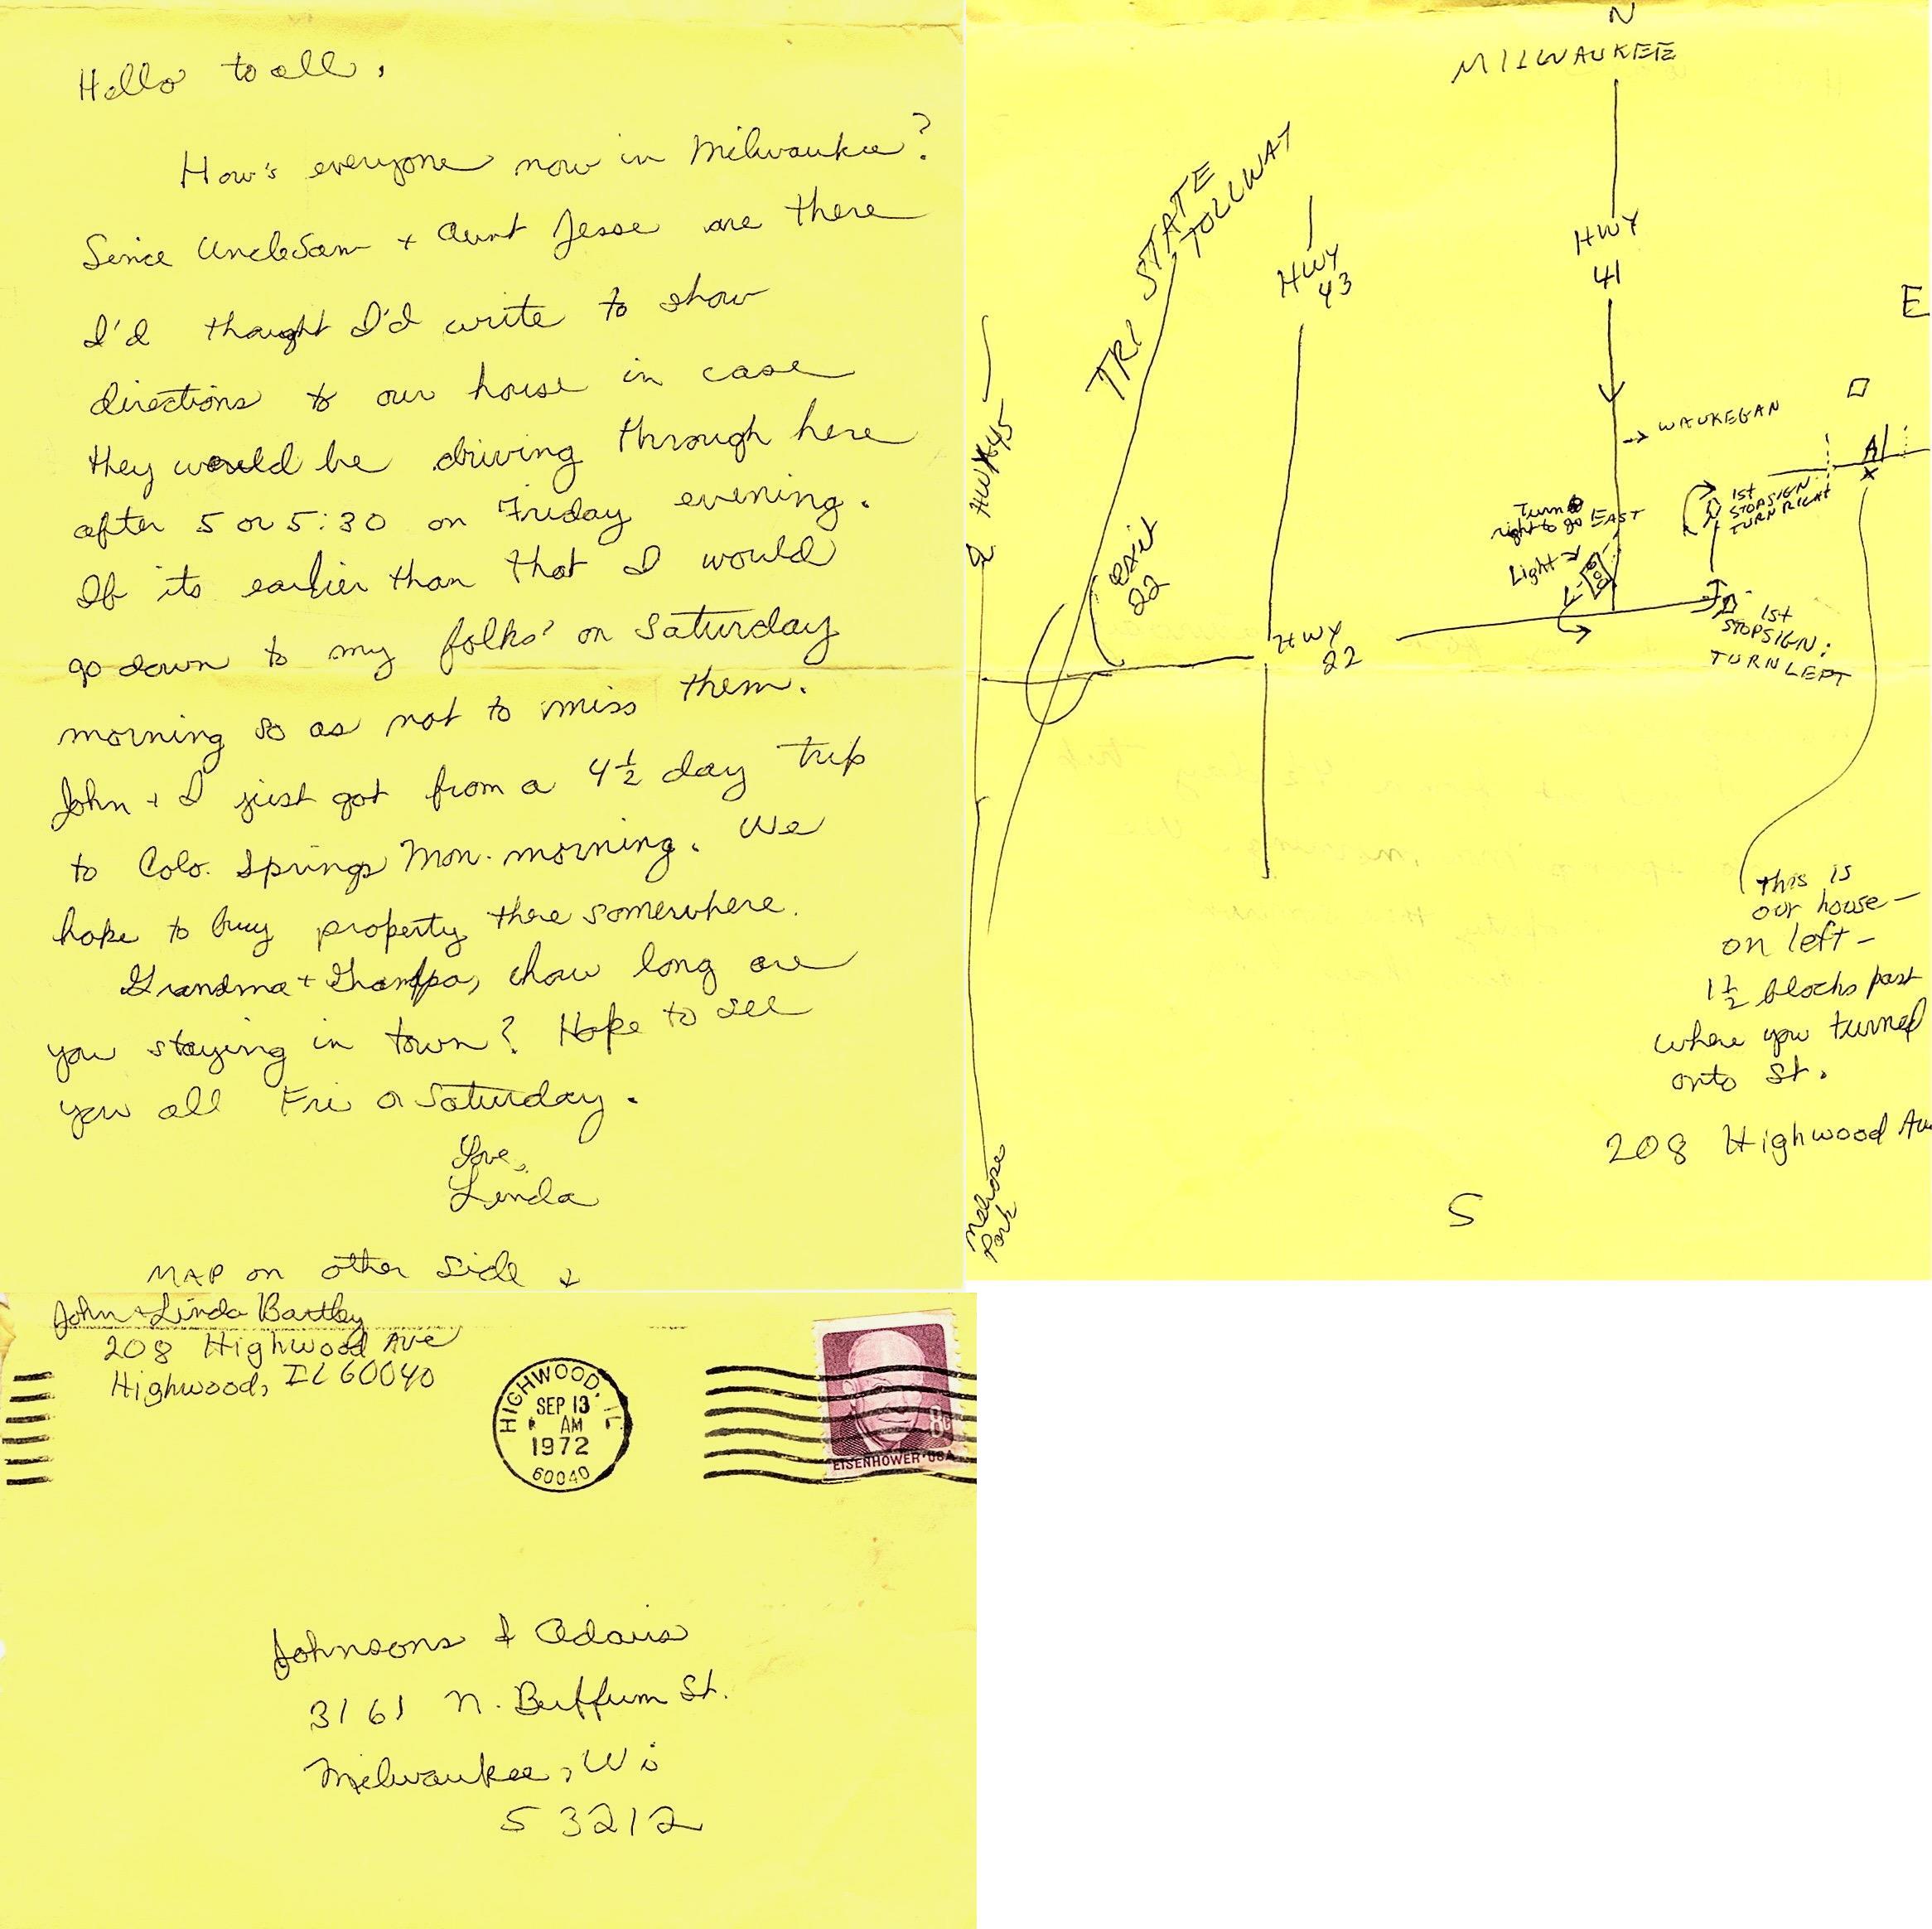 Hello to all,
How's everyone now in Milwaukee?
Since Uncle Sam + Aunt Jesse are there
I'd thought I'd write to show
directions to our house in case
they would be driving through here
after 5 or 5:30 on Friday evening.
If its earlier than that I would
go down to my folks' on Saturday
morning so as not to miss them.
John + I just got from a 4½ day trip
to Colo. Springs Mon. morning. We
hope to buy property there somewhere.
Grandma + Grampa, how long are
you staying in town? Hope to see
you all Fri or Saturday.
Love,
Linda
MAP on other side ↓
N
MILWAUKEE
TRI STATE TOLLWAY
HWY
43
HWY
41
E
HWY 45
→ WAUKEGAN
Turn
right to go EAST
Light →
1st
STOPSIGN
TURN RIGHT
exit
22
HWY
22
1st
STOPSIGN:
TURN LEFT
This is
our house—
on left—
1½ blocks past
where you turned
onto St.
208 Highwood Ave
S
Melrose
Park
John + Linda Bartley
208 Highwood Ave
Highwood, IL 60040
HIGHWOOD, IL
SEP 13
AM
1972
60040
8¢
EISENHOWER·USA
Johnsons & Adairs
3161 N. Buffum St.
Milwaukee, Wi
53212